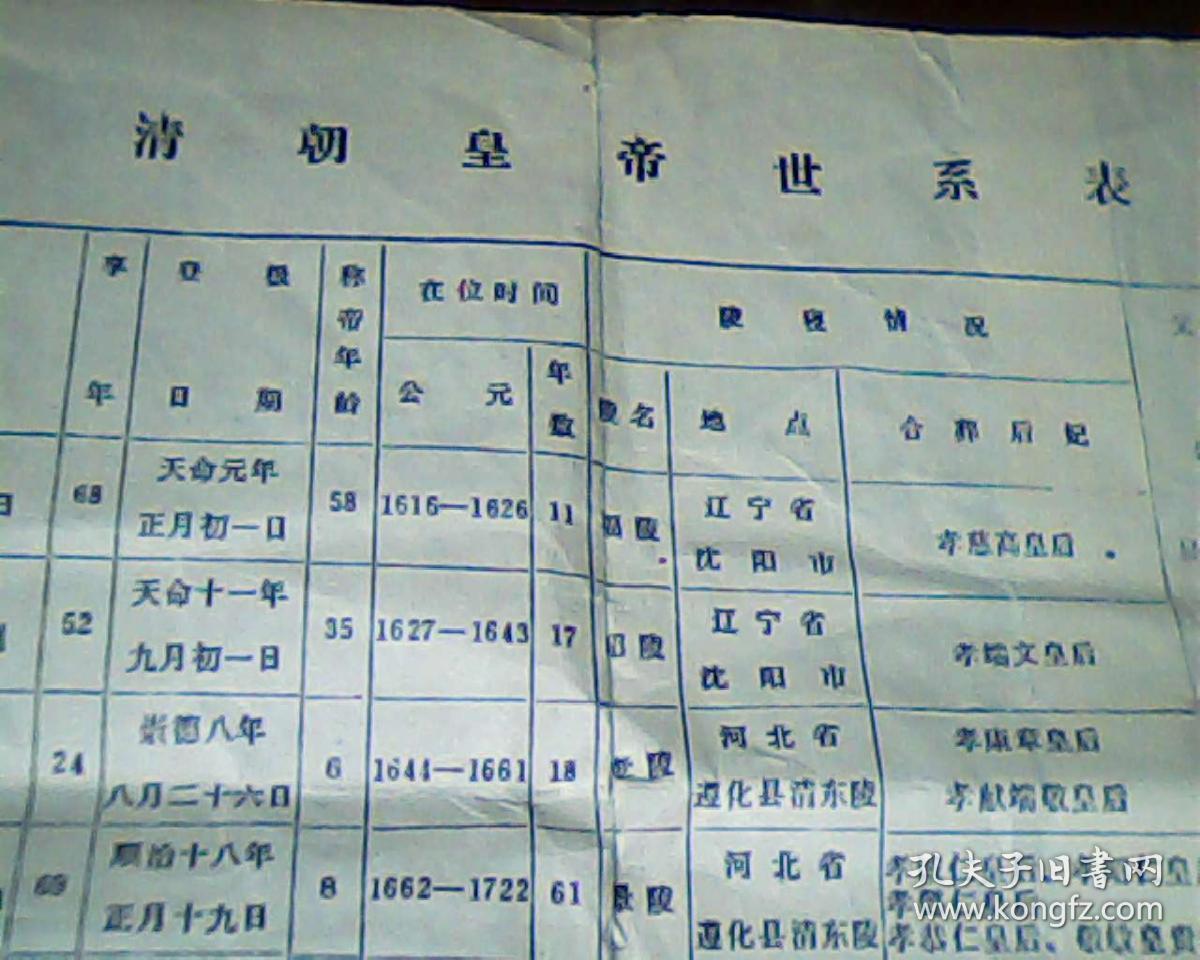 清朝皇帝世系表
享年
登极日期
称帝年龄
在位时间
公元
年数
陵寝情况
陵名
地点
合葬后妃
日
68
天命元年
正月初一日
58
1616—1626
11
陵
辽宁省
沈阳市
孝慈高皇后
52
天命十一年
九月初一日
35
1627—1643
17
昭陵
辽宁省
沈阳市
孝端文皇后
24
崇德八年
八月二十六日
6
1644—1661
18
孝陵
河北省
遵化县清东陵
孝康章皇后
孝献端敬皇后
69
顺治十八年
正月十九日
8
1662—1722
61
景陵
河北省
遵化县清东陵
孝恭仁皇后、敬敏皇贵
孔夫子旧书网
www.kongfz.com